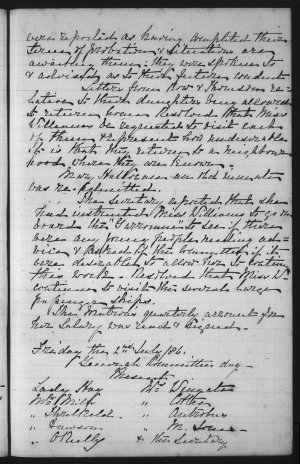 were reported as having completed their
term of Probation & Situations are
awaiting them: they were spoken to
& advised as to their future conduct
Letters from Row & Thomson re-
lative to their daughters being allowed
to return home Resolved that Miss
Williams be requested to visit each
of them & represent how undesirable
it is that they return to a neighbour
hood where they are known.
Mary an old inmate
was re-admitted.
The Secretary reported that she
had instructed Miss Williams to go on
board the to see if there
were any young people needing ad-
vice & asked of the Committee if it
were desirable to allow her to continue
this work. Resolved that Miss Wms
continue to visit the several large
passenger ships.
The Matron's quarterly account for
her Salary was read & signed.
Friday the 2nd July /86.
Committee day
Present
Lady Hay Mrs
Mrs
" Threlkeld "
" Dawson " M. Jones
" O'Reilly & the Secretary